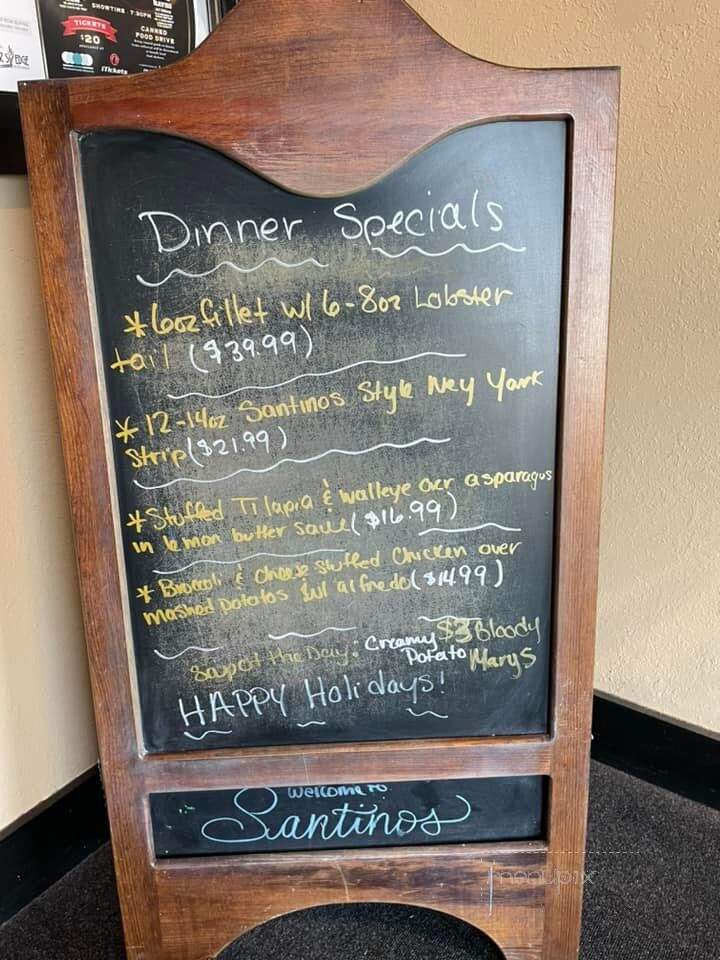 SHOWTIME · 7:30PM
TICKETS
$20
CANNED
FOOD DRIVE
iTickets
EDGE
Dinner Specials
* 6oz fillet w/ 6-8oz Lobster
tail ($39.99)
* 12-14oz Santinos Style Ney York
Strip ($21.99)
* Stuffed Tilapia & walleye over asparagus
in lemon butter sauce ($16.99)
* Broccoli & cheese stuffed Chicken over
mashed potatos w/ alfredo ($14.99)
Soup of the Day: Creamy
Potato
$3 Bloody
Marys
HAPPY Holidays!
Welcome to
Santinos
menupix